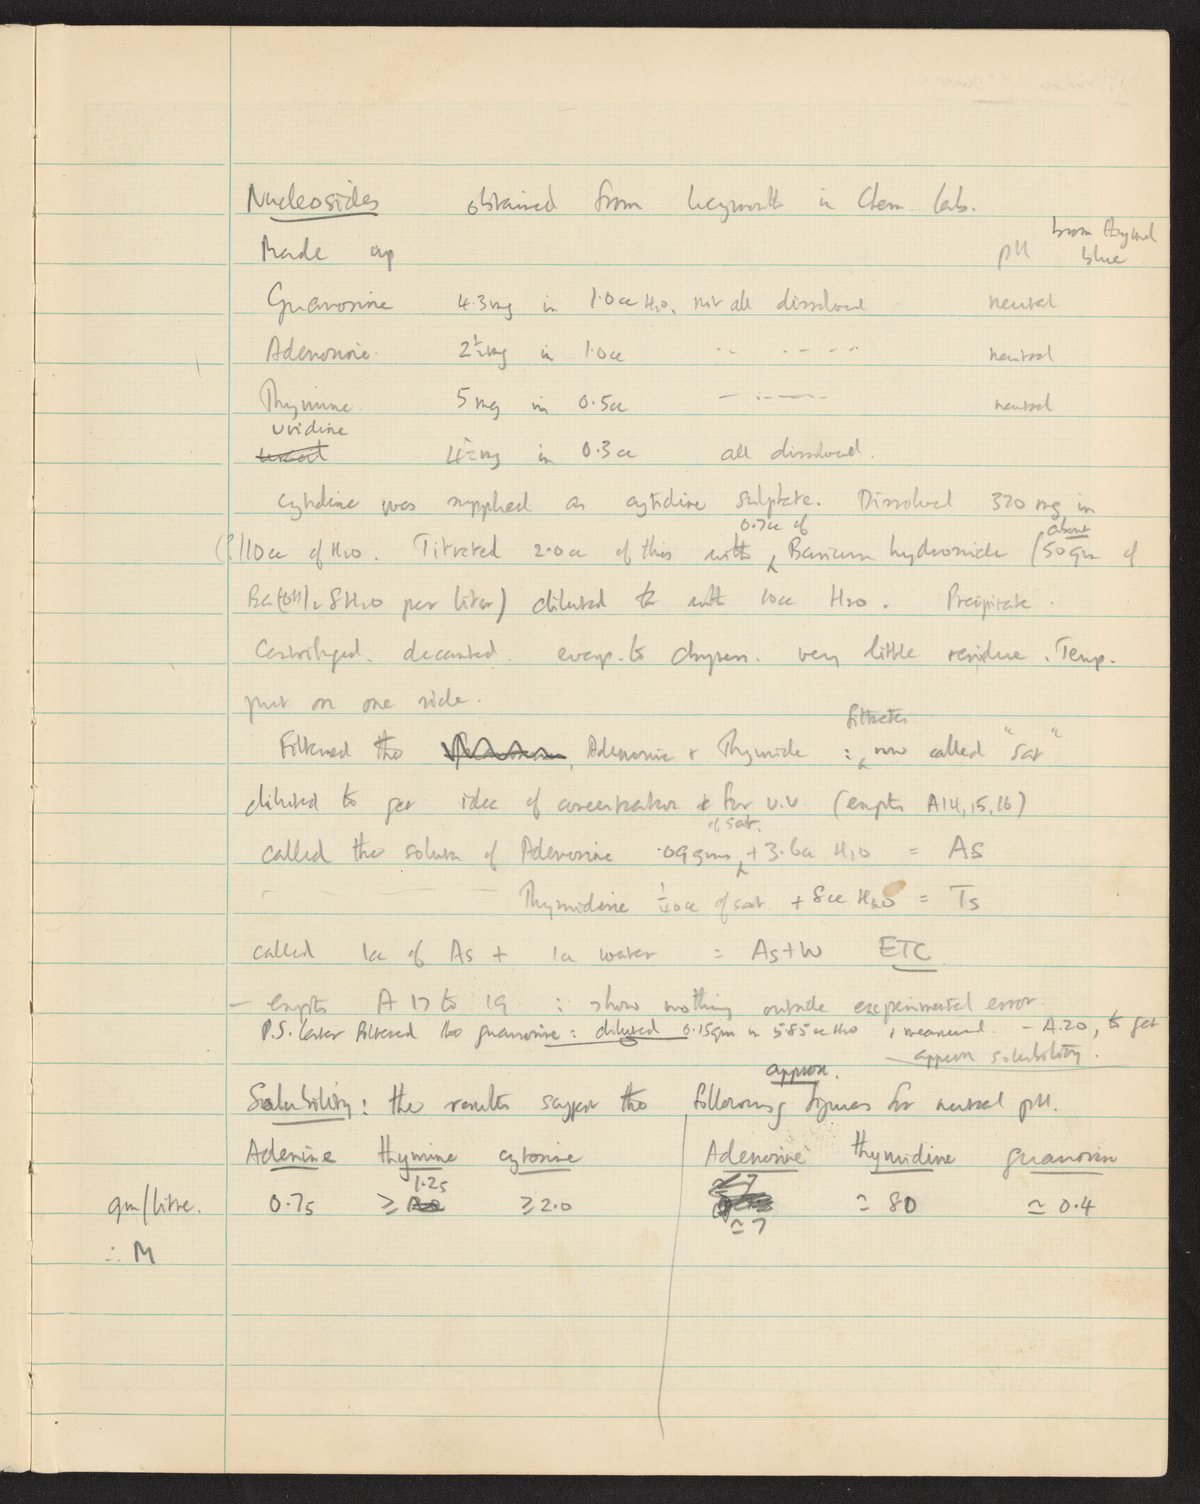 Nucleosides obtained from in Chem. lab.
Made up pH brom thymol blue
Guanosine 4.3 mg in 1.0cc H2O. not all dissolved neutral
Adenosine 2½mg in 1.0cc -- -- -- -- neutral
Thymine 5 mg in 0.5cc -- -- -- -- neutral
uridine
4½mg in 0.3cc all dissolved.
cytidine was supplied as cytidine sulphate. Dissolved 320 mg in
(?) 10cc of H2O. Titrated 2.0cc of this with 0.7cc of Barium hydroxide (about 50gm of
Ba(OH)2 8H2O per liter) diluted with 10cc H2O. Precipitate.
Centrifuged. decanted. evap. to dryness. very little residue. Temp.
put on one side.
Filtered the Adenosine + Thymide : filtrates now called "Sat"
diluted to get idea of concentration & for U.V. (expts A14, 15, 16)
called the solution of Adenosine .09gms of sat. + 3.6cc H2O = As
Thymidine 1/40cc of sat + 8cc H2O = Ts
called 1cc of As + 1cc water = As+W ETC
- expts A 17 to 19 : show nothing outside experimental error.
P.S. later filtered the guanosine : diluted 0.15gm in 5.85cc H2O, measured. - A.20, to get
approx solubility.
Solubility : the results suggest the following approx. figures for neutral pH.
Adenine thymine cytosine Adenosine thymidine guanosin
gm/litre. 0.75 ≥ 1.25 ≥ 2.0 ≃ 7 ≃ 80 ≃ 0.4
≃ 7
∴ M